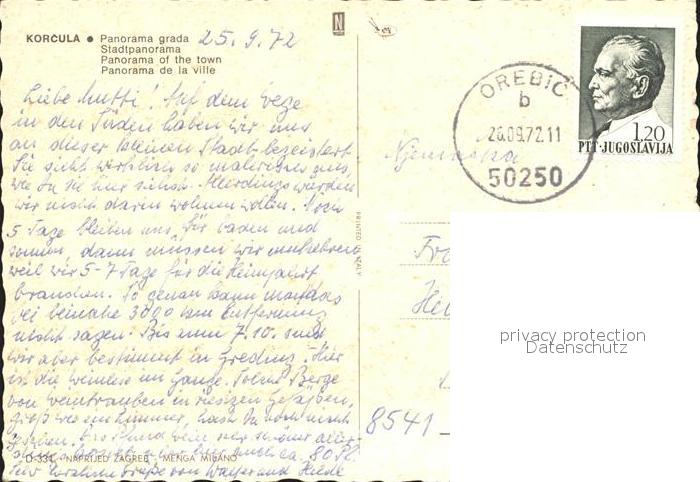 KORČULA ● Panorama grada 25.9.72
Stadtpanorama
Panorama of the town
Panorama de la ville
Liebe Mutti! Auf dem Wege
in den Süden haben wir uns
an dieser kleinen Stadt begeistert.
Sie sieht wirklich so malerisch aus,
wie du sie hier siehst. Allerdings würden
wir nicht darin wohnen wollen. Noch
5 Tage bleiben uns für baden und
sonnen, dann müssen wir aufbrechen
weil wir 5-7 Tage für die Heimfahrt
brauchen. So genau kann man das
bei beinahe 3000 km Entfernung
nicht sagen. Bis zum 7.10. sind
wir aber bestimmt in Greding. Hier
ist die Weinlese im Gange. Tolle Berge
von Weintrauben in riesigen Gefäßen,
groß wie ein Zimmer, hast Du noch nicht
gesehen.
ca. 80 Pf.
Sehr herzliche Grüße von Walter und Heide
D-334 NAPRIJED ZAGREB MENGA MILANO
N
PRINTED IN ITALY
OREBIĆ
b
26.09.72.11
50250
1,20
PTT-JUGOSLAVIJA
Njemačka
Fra
Hei
8541
privacy protection
Datenschutz